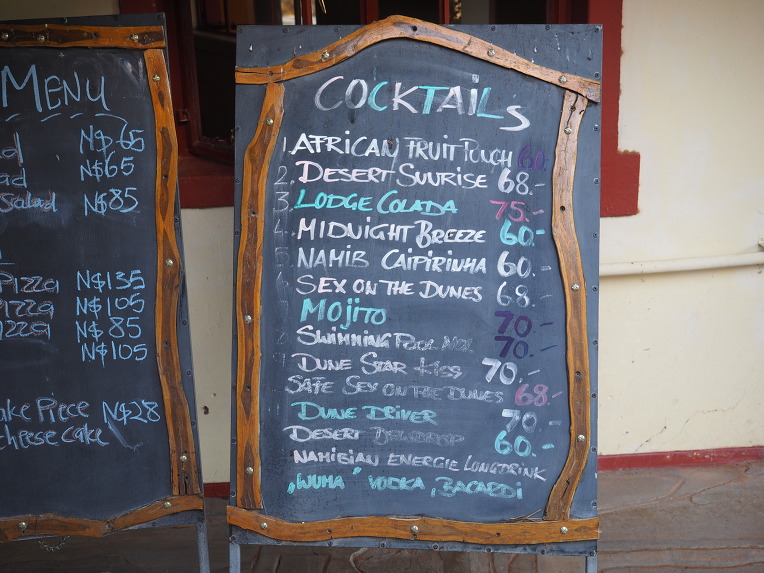 MENU
N$65
N$65
Salad N$85
Pizza N$135
Pizza N$105
Pizza N$85
N$105
Piece N$28
cheese cake
COCKTAILS
1. AFRICAN FRUIT PUNCH 60.-
2. DESERT SUURISE 68.-
3. LODGE COLADA 75.-
4. MIDNIGHT BREEZE 60.-
5. NAMIB CAIPIRINHA 60.-
6 SEX ON THE DUNES 68.-
7 MOJITO 70.-
8 SWIMMING POOL 70.-
9 DUNE STAR KISS 70.-
SAFE SEX ON THE DUNES 68.-
DUNE DRIVER 70.-
DESERT DEWDROP 60.-
NAMIBIAN ENERGIE LONGDRINK
"WUMA" VODKA, BACARDI